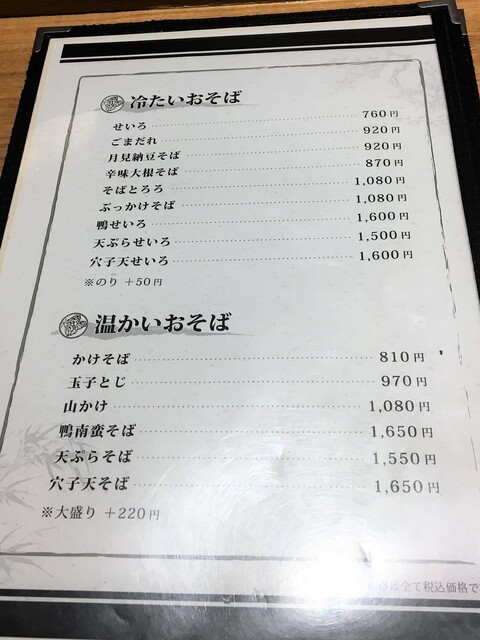 冷たいおそば
せいろ 760円
ごまだれ 920円
月見納豆そば 920円
辛味大根そば 870円
そばとろろ 1,080円
ぶっかけそば 1,080円
鴨せいろ 1,600円
天ぷらせいろ 1,500円
穴子天せいろ 1,600円
※のり +50円
温かいおそば
かけそば 810円
玉子とじ 970円
山かけ 1,080円
鴨南蛮そば 1,650円
天ぷらそば 1,550円
穴子天そば 1,650円
※大盛り +220円
全て税込価格で